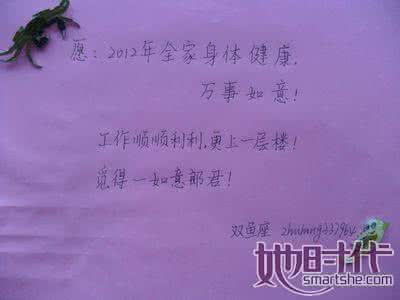 愿：2012年全家身体健康，
万事如意！
工作顺顺利利，更上一层楼！
觅得一如意郎君！
双鱼座
她时代
smartshe.com